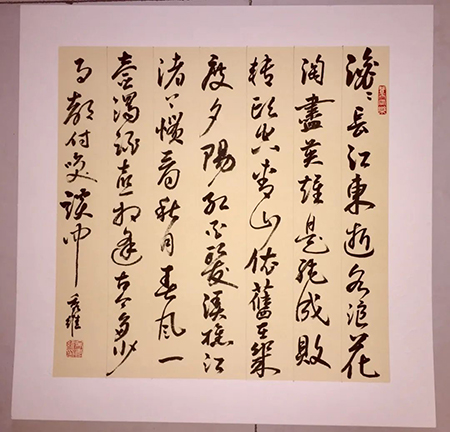 滾々長江東逝水浪花
淘盡英雄是非成敗
轉頭空青山依舊在幾
度夕陽紅白髮漁樵江
渚上慣看秋月春風一
壺濁酒喜相逢古今多少
事都付笑談中